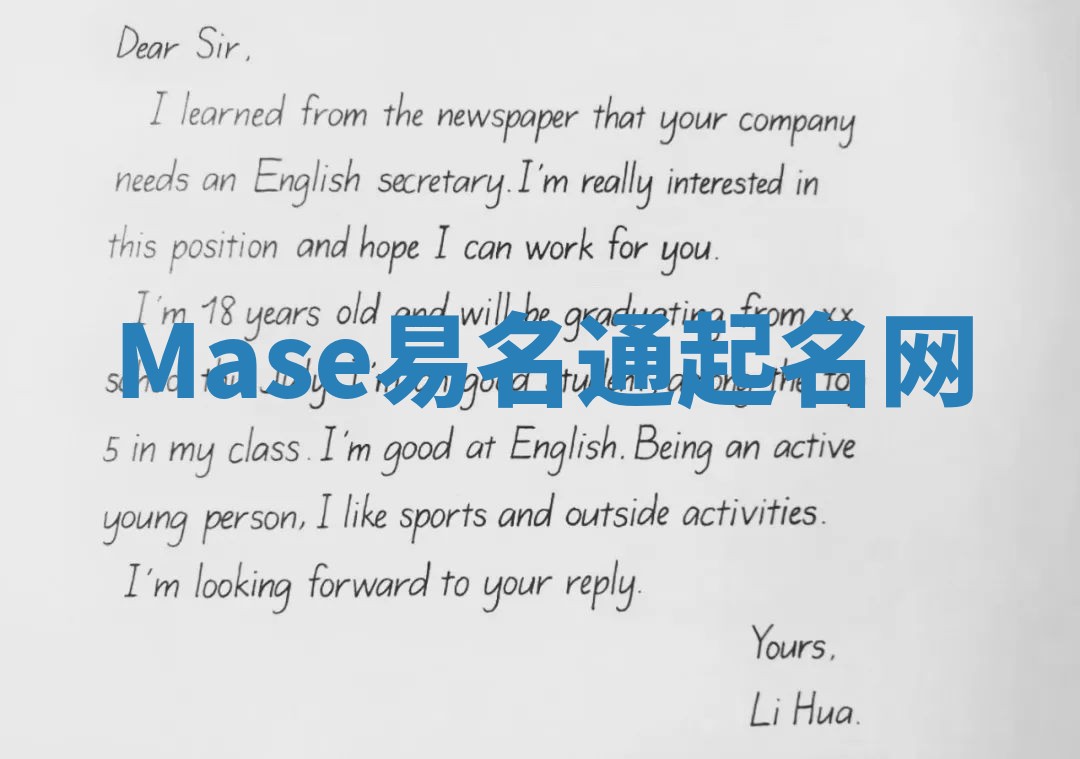 Dear Sir,
I learned from the newspaper that your company
needs an English secretary. I'm really interested in
this position and hope I can work for you.
I'm 18 years old and will be graduating from xx
Mase易名通起名网
school this July. I'm a good student, among the top
5 in my class. I'm good at English. Being an active
young person, I like sports and outside activities.
I'm looking forward to your reply.
Yours,
Li Hua.